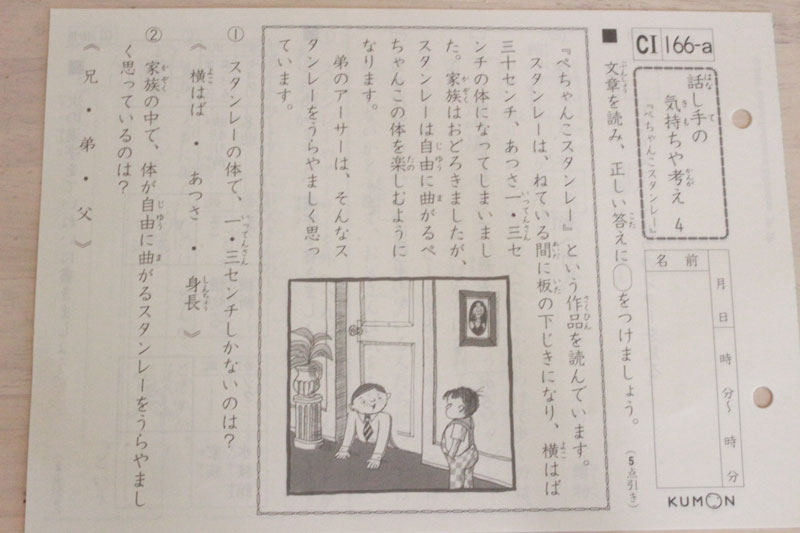 CI 166-a
話し手の
気持ちや考え 4
『ぺちゃんこスタンレー』
名前
月 日
時 分〜 時 分
KUMON
■ 文章を読み、正しい答えに◯をつけましょう。(5点引き)
『ぺちゃんこスタンレー』という作品を読んでいます。
スタンレーは、ねている間に板の下じきになり、横はば
三十センチ、あつさ一・三セ
ンチの体になってしまいまし
た。家族はおどろきましたが、
スタンレーは自由に曲がるぺ
ちゃんこの体を楽しむように
なります。
弟のアーサーは、そんなス
タンレーをうらやましく思っ
ています。
① スタンレーの体で、一・三センチしかないのは?
《 横はば ・ あつさ ・ 身長 》
② 家族の中で、体が自由に曲がるスタンレーをうらやまし
く思っているのは?
《 兄 ・ 弟 ・ 父 》